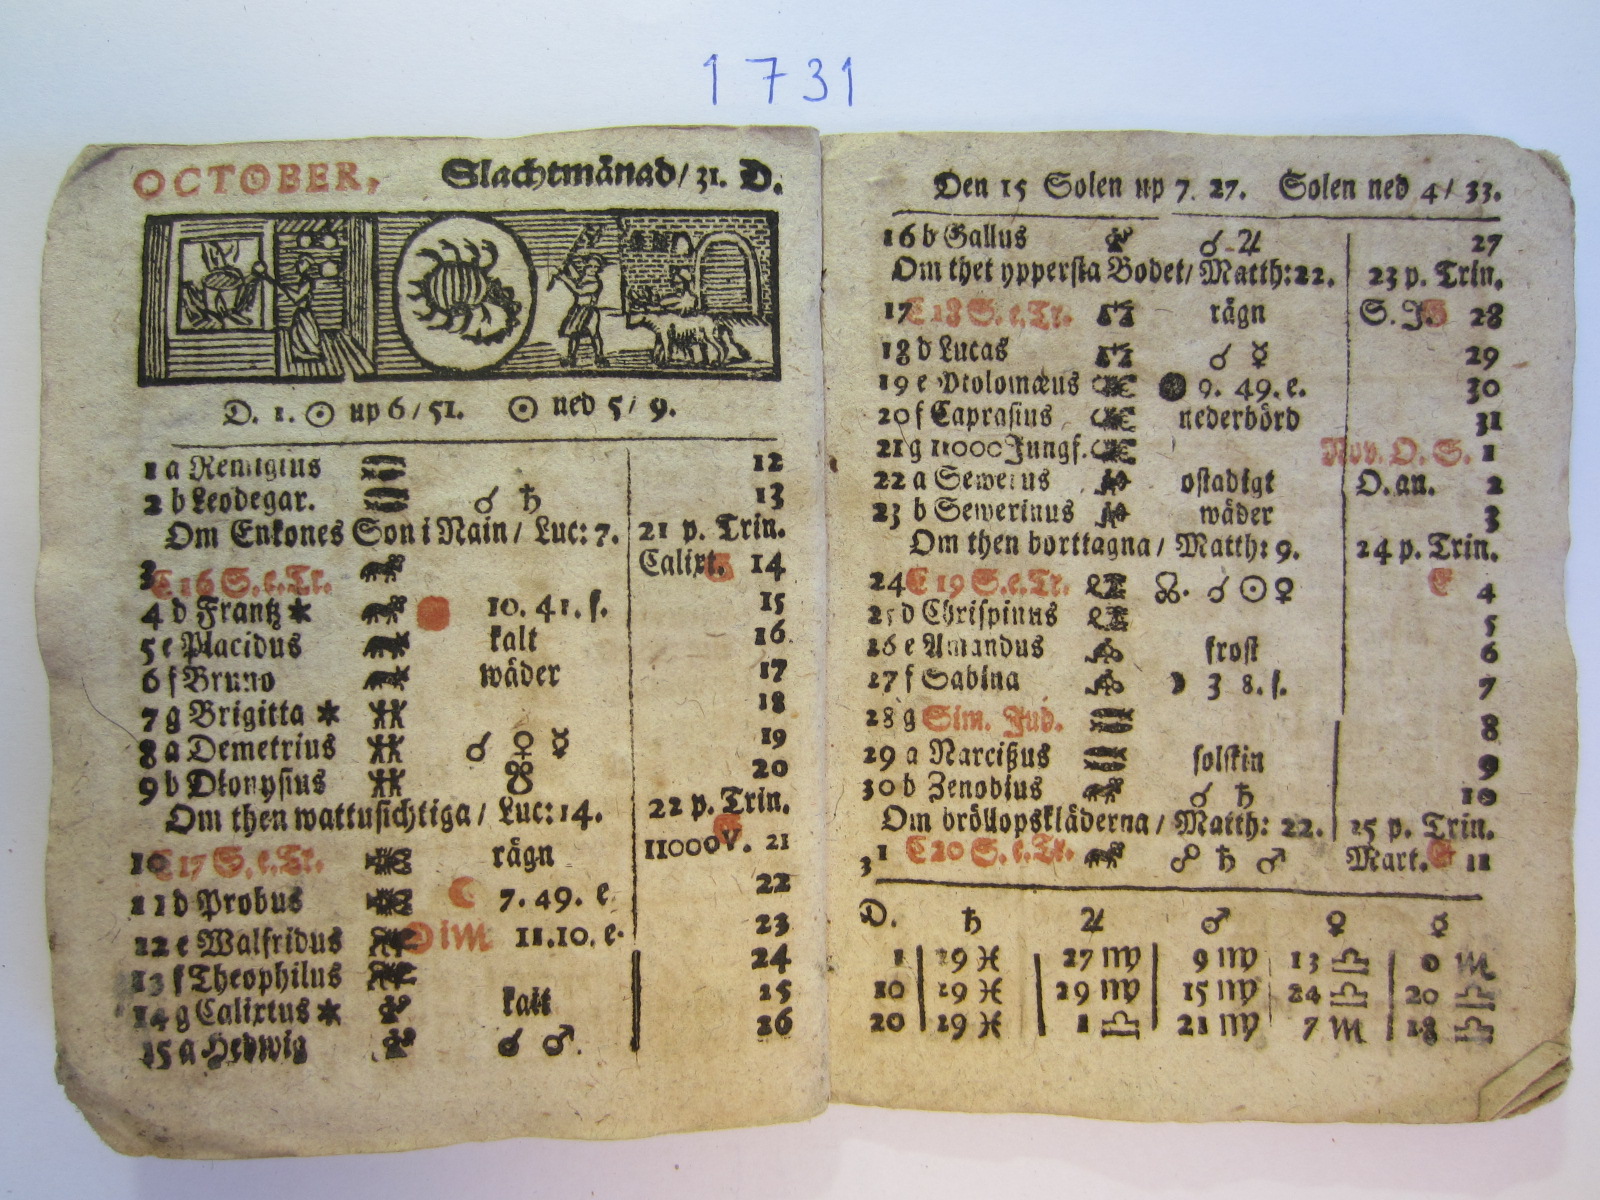 1731
OCTOBER, Slachtmånad/ 31. D.
D. 1. ☉ up 6/51. ☉ ned 5/ 9.
1 a Remigius 12
2 b Leodegar. ☌ ♄ 13
Om Enkones Son i Nain/ Luc: 7. 21 p. Trin.
3 C 16 S. e. Tr. Calixt. G 14
4 d Frantz * 10. 41. f. 15
5 e Placidus kalt 16
6 f Bruno wäder 17
7 g Brigitta * 18
8 a Demetrius ☌ ♀ ☿ 19
9 b Dionysius ☋ 20
Om then wattusichtiga/ Luc: 14. 22 p. Trin.
10 C 17 S. e. Tr. rägn 11000 V. G 21
11 d Probus ☾ 7. 49. e. 22
12 e Walfridus ☉ i ♏ 11. 10. e. 23
13 f Theophilus 24
14 g Calixtus * kalt 25
15 a Hedwig ☌ ♂. 26
Den 15 Solen up 7. 27. Solen ned 4/ 33.
16 b Gallus ☌ ♃ 27
Om thet yppersta Bodet/ Matth: 22. 23 p. Trin.
17 C 18 S. e. Tr. rägn S. J. G 28
18 d Lucas ☌ ☿ 29
19 e Ptolomæus ● 9. 49. e. 30
20 f Caprasius nederbörd 31
21 g 11000 Jungf. Nov. O. S. 1
22 a Sewerus ostadigt O. an. 2
23 b Sewerinus wäder 3
Om then borttagna/ Matth: 9. 24 p. Trin.
24 C 19 S. e. Tr. ☊. ☌ ☉ ♀ G 4
25 d Chrispinus 5
26 e Amandus frost 6
27 f Sabina ☽ 3 8. f. 7
28 g Sim. Jud. 8
29 a Narcißus solskin 9
30 b Zenobius ☌ ♄ 10
Om bröllopskläderna/ Matth: 22. 25 p. Trin.
31 C 20 S. e. Tr. ☍ ♄ ♂ Mart. G 11
D. ♄ ♃ ♂ ♀ ☿
1 19 ♓ 27 ♍ 9 ♍ 13 ♎ 0 ♏
10 19 ♓ 29 ♍ 15 ♍ 24 ♎ 20 ♎
20 19 ♓ 1 ♎ 21 ♍ 7 ♏ 18 ♎